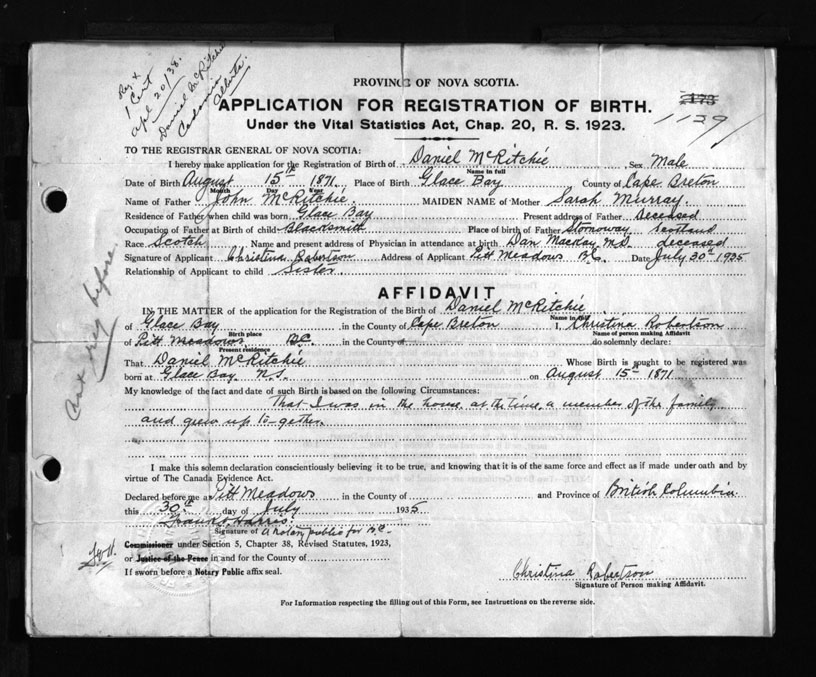 Reg &
1 Cert
Apl 20/38.
Daniel McRitchie
Cadomin
Alberta
PROVINCE OF NOVA SCOTIA.
APPLICATION FOR REGISTRATION OF BIRTH.
Under the Vital Statistics Act, Chap. 20, R. S. 1923.
1129
TO THE REGISTRAR GENERAL OF NOVA SCOTIA:
I hereby make application for the Registration of Birth of Daniel McRitchie Sex Male
Name in full
Date of Birth August 15th 1871. Place of Birth Glace Bay County of Cape Breton
Month Day Year
Name of Father John McRitchie. MAIDEN NAME of Mother Sarah Murray.
Residence of Father when child was born Glace Bay Present address of Father Deceased
Occupation of Father at Birth of child Blacksmith Place of birth of Father Stornoway, Scotland
Race Scotch. Name and present address of Physician in attendance at birth Dan MacKay, M.D. deceased
Signature of Applicant Christina Robertson Address of Applicant Pitt Meadows B.C. Date July 30th 1935
Relationship of Applicant to child Sister
AFFIDAVIT
IN THE MATTER of the application for the Registration of the Birth of Daniel McRitchie
Name in full
of Glace Bay in the County of Cape Breton I, Christina Robertson
Birth place Name of person making Affidavit
of Pitt Meadows B.C. in the County of do solemnly declare:
Present residence
That Daniel McRitchie Whose Birth is sought to be registered was
born at Glace Bay. N.S. on August 15th 1871
My knowledge of the fact and date of such Birth is based on the following Circumstances:
That I was in the home, at the time, a member of the family
and grew up to-gether.
I make this solemn declaration conscientiously believing it to be true, and knowing that it is of the same force and effect as if made under oath and by
virtue of The Canada Evidence Act.
Declared before me at Pitt Meadows in the County of and Province of British Columbia
this 30th day of July 1935
Harris
Signature of a notary public for B.C.
Commissioner under Section 5, Chapter 38, Revised Statutes, 1923,
or Justice of the Peace in and for the County of
If sworn before a Notary Public affix seal.
Christina Robertson
Signature of Person making Affidavit.
For Information respecting the filling out of this Form, see Instructions on the reverse side.
not reg before